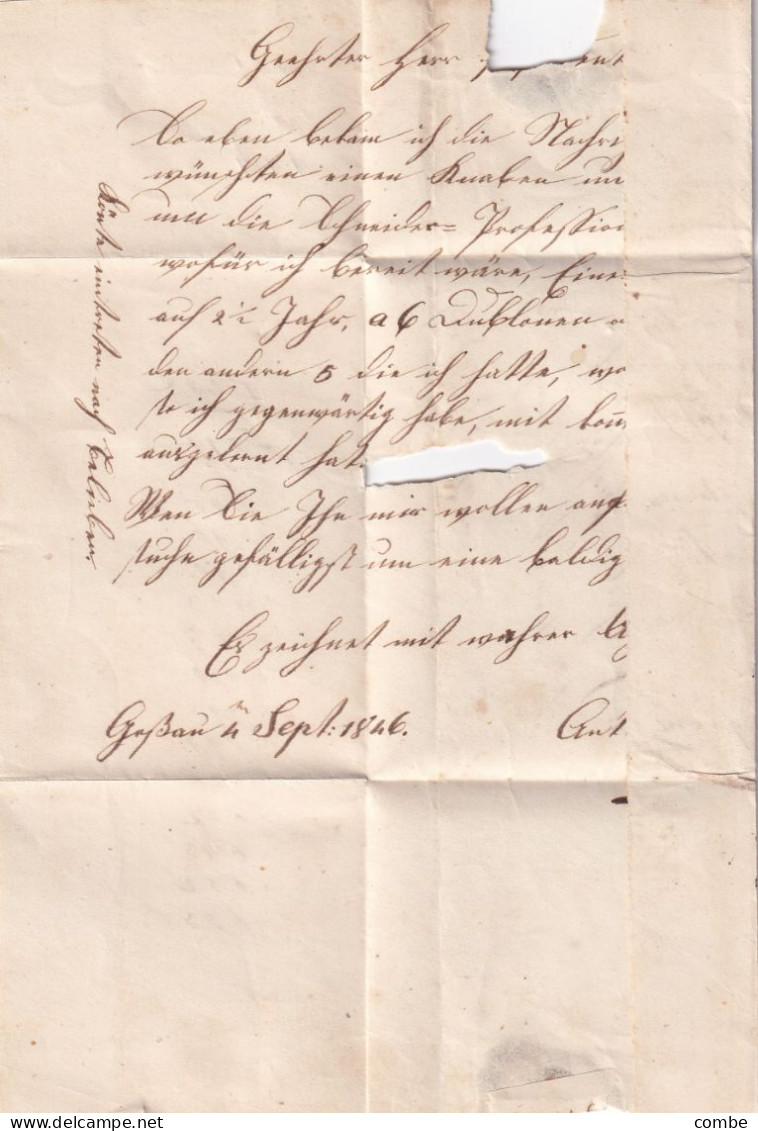 Geehrter Herr
So eben bekam ich die Nachri
wünschten einen Knaben un
um die Schneider= Profession
wofür ich bereit wäre, Eine
auf 2½ Jahr, a 6 Dublonen
den andern 5 die ich hatte, wo
so ich gegenwärtig habe, mit
ausgelernt hat.
Wen Sie Ihn mir wollen anf
suche gefälligst um eine baldig
Es zeichnet mit wahrer
Goßau 4 Sept: 1846.
Ant
Könte eintreten nach Belieben.
combe
delcampe.net